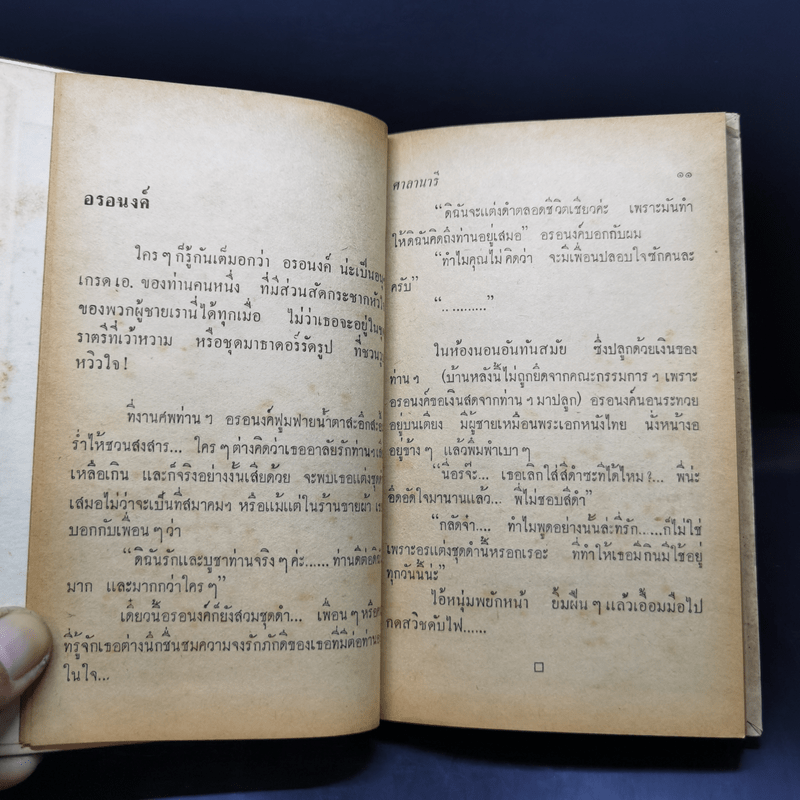 อรอนงค์
ใคร ๆ ก็รู้กันเต็มอกว่า อรอนงค์ น่ะเป็นอนุ
เกรด เอ. ของท่านคนหนึ่ง ที่มีส่วนสัดกระชากหัวใจ
ของพวกผู้ชายเรานี้ได้ทุกเมื่อ ไม่ว่าเธอจะอยู่ในชุด
ราตรีที่เว้าหวาม หรือชุดมาธาดอร์รัดรูป ที่ชวน
หวิวใจ !
ที่งานศพท่าน ๆ อรอนงค์ฟูมฟายน้ำตาสะอึกสะอื้น
ร่ำไห้ชวนสงสาร... ใคร ๆ ต่างคิดว่าเธออาลัยรักท่าน
เหลือเกิน และก็จริงอย่างงั้นเสียด้วย จะพบเธอแต่งชุด
เสมอไม่ว่าจะเป็นที่สมาคมฯ หรือแม้แต่ในร้านขายผ้า
บอกกับเพื่อน ๆ ว่า
“ดิฉันรักและบูชาท่านจริง ๆ ค่ะ...... ท่านดีต่อดิฉัน
มาก และมากกว่าใคร ๆ”
เดี๋ยวนี้อรอนงค์ก็ยังสวมชุดดำ... เพื่อน ๆ หรือ
ที่รู้จักเธอต่างนึกชื่นชมความจงรักภักดีของเธอที่มีต่อท่าน
ในใจ...
ศาลานารี ๑๑
“ดิฉันจะแต่งดำตลอดชีวิตเชียวค่ะ เพราะมันทำ
ให้ดิฉันคิดถึงท่านอยู่เสมอ” อรอนงค์บอกกับผม
“ทำไมคุณไม่คิดว่า จะมีเพื่อนปลอบใจซักคนละ
ครับ”
“...........”
ในห้องนอนอันทันสมัย ซึ่งปลูกด้วยเงินของ
ท่าน ๆ (บ้านหลังนี้ไม่ถูกยึดจากคณะกรรมการ ฯ เพราะ
อรอนงค์ขอเงินสดจากท่าน ๆ มาปลูก) อรอนงค์นอนระทวย
อยู่บนเตียง มีผู้ชายเหมือนพระเอกหนังไทย นั่งหน้างอ
อยู่ข้าง ๆ แล้วพึมพำเบา ๆ
“นี่อรจ๊ะ... เธอเลิกใส่สีดำซะทีได้ไหม ?... พี่น่ะ
อึดอัดใจมานานแล้ว... พี่ไม่ชอบสีดำ”
“กลัดจ๋า.... ทำไมพูดอย่างนั้นล่ะที่รัก......ก็ไม่ใช่
เพราะอรแต่งชุดดำนี้หรอกเรอะ ที่ทำให้เธอมีกินมีใช้อยู่
ทุกวันนี้น่ะ”
ไอ้หนุ่มพยักหน้า ยิ้มฝืน ๆ แล้วเอื้อมมือไป
กดสวิชดับไฟ......